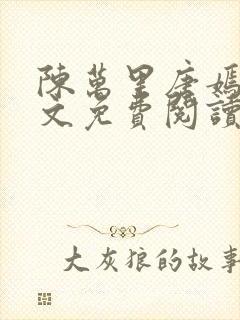 陳萬里唐嫣
文免費閱讀
大灰狼的故事